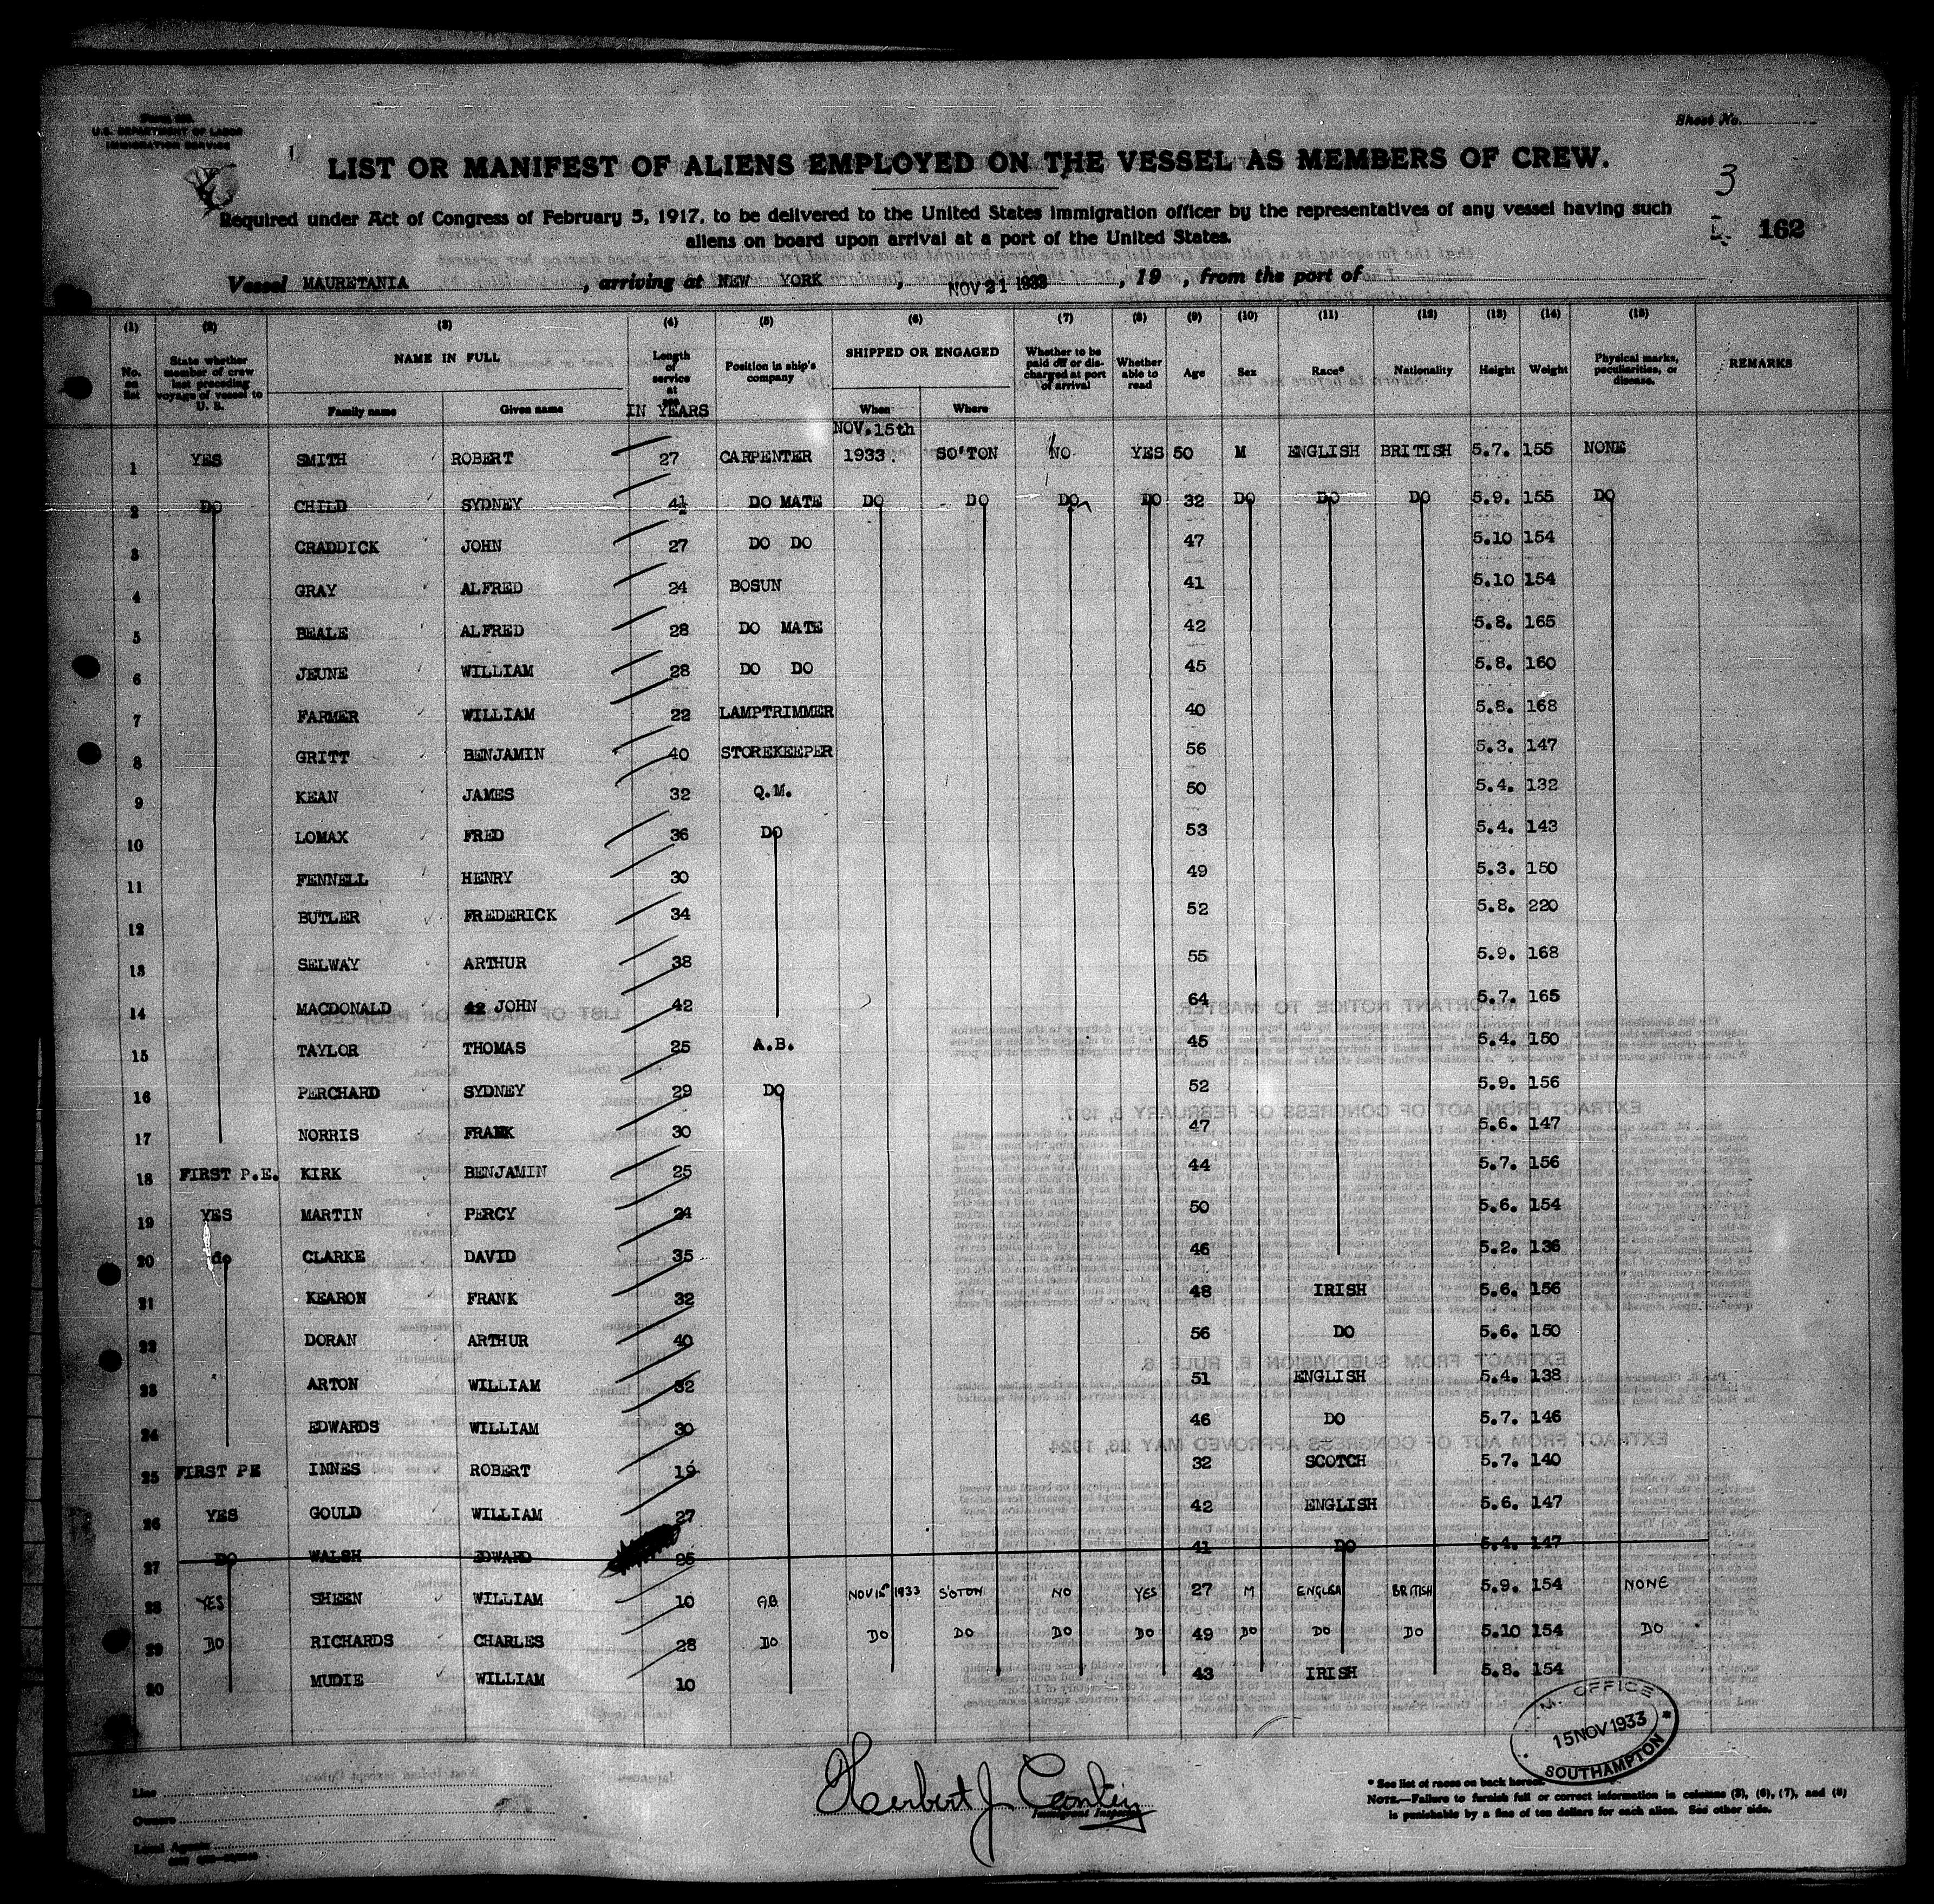 U.S. DEPARTMENT OF LABOR
IMMIGRATION SERVICE
Sheet No.
LIST OR MANIFEST OF ALIENS EMPLOYED ON THE VESSEL AS MEMBERS OF CREW.
3
Required under Act of Congress of February 5, 1917, to be delivered to the United States immigration officer by the representatives of any vessel having such
aliens on board upon arrival at a port of the United States.
162
Vessel MAURETANIA, arriving at NEW YORK, NOV 21 1933, 19 , from the port of
(1) (2) (3) (4) (5) (6) (7) (8) (9) (10) (11) (12) (13) (14) (15)
No. on list
State whether member of crew last preceding voyage of vessel to U. S.
NAME IN FULL
Family name Given name
Length of service at sea IN YEARS
Position in ship's company
SHIPPED OR ENGAGED
When Where
Whether to be paid off or discharged at port of arrival
Whether able to read
Age Sex Race* Nationality Height Weight
Physical marks, peculiarities, or disease.
REMARKS
NOV. 15th
1 YES SMITH ROBERT 27 CARPENTER 1933. SO'TON NO YES 50 M ENGLISH BRITISH 5.7. 155 NONE
2 DO CHILD SYDNEY 4½ DO MATE DO DO DO DO 32 DO DO DO 5.9. 155 DO
3 CRADDICK JOHN 27 DO DO 47 5.10 154
4 GRAY ALFRED 24 BOSUN 41 5.10 154
5 BEALE ALFRED 28 DO MATE 42 5.8. 165
6 JEUNE WILLIAM 28 DO DO 45 5.8. 160
7 FARMER WILLIAM 22 LAMPTRIMMER 40 5.8. 168
8 GRITT BENJAMIN 40 STOREKEEPER 56 5.3. 147
9 KEAN JAMES 32 Q.M. 50 5.4. 132
10 LOMAX FRED 36 DO 53 5.4. 143
11 FENNELL HENRY 30 49 5.3. 150
12 BUTLER FREDERICK 34 52 5.8. 220
13 SELWAY ARTHUR 38 55 5.9. 168
14 MACDONALD 42 JOHN 42 64 5.7. 165
15 TAYLOR THOMAS 25 A.B. 45 5.4. 150
16 PERCHARD SYDNEY 29 DO 52 5.9. 156
17 NORRIS FRANK 30 47 5.6. 147
18 FIRST P.E. KIRK BENJAMIN 25 44 5.7. 156
19 YES MARTIN PERCY 24 50 5.6. 154
20 do CLARKE DAVID 35 46 5.2. 136
21 KEARON FRANK 32 48 IRISH 5.6. 156
22 DORAN ARTHUR 40 56 DO 5.6. 150
23 ARTON WILLIAM 32 51 ENGLISH 5.4. 138
24 EDWARDS WILLIAM 30 46 DO 5.7. 146
25 FIRST PE INNES ROBERT 19 32 SCOTCH 5.7. 140
26 YES GOULD WILLIAM 27 42 ENGLISH 5.6. 147
27 DO WALSH EDWARD 25 41 DO 5.4. 147
28 YES SHEEN WILLIAM 10 A.B. NOV 15th 1933 S'OTON NO YES 27 M ENGLISH BRITISH 5.9. 154 NONE
29 DO RICHARDS CHARLES 28 DO DO DO DO DO 49 DO DO DO 5.10 154 DO
30 MUDIE WILLIAM 10 43 IRISH 5.8. 154
M. OFFICE
15 NOV 1933
SOUTHAMPTON
Line
Owners
Local Agents
Immigrant Inspector
* See list of races on back hereof.
NOTE.—Failure to furnish full or correct information in columns (3), (6), (7), and (8)
is punishable by a fine of ten dollars for each alien. See other side.